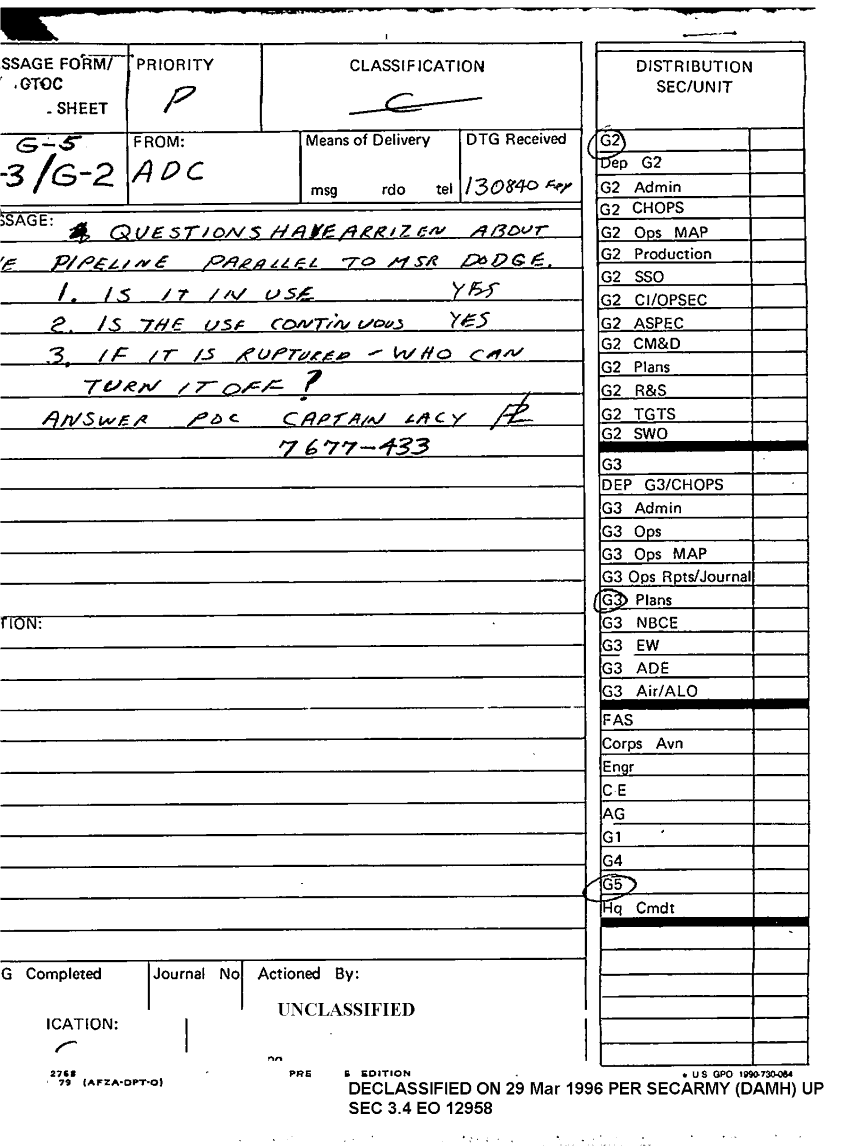 SSAGE FORM/
.GTOC
- SHEET
PRIORITY
P
CLASSIFICATION
C
DISTRIBUTION
SEC/UNIT
G-5
-3/G-2
FROM:
ADC
Means of Delivery
msg rdo tel
DTG Received
130840 Feb
SSAGE:
QUESTIONS HAVE ARRIZEN ABOUT
E PIPELINE PARALLEL TO MSR DODGE.
1. IS IT IN USE YES
2. IS THE USE CONTINUOUS YES
3. IF IT IS RUPTURED - WHO CAN
TURN IT OFF?
ANSWER POC CAPTAIN LACY
7677-433
TION:
G2
Dep G2
G2 Admin
G2 CHOPS
G2 Ops MAP
G2 Production
G2 SSO
G2 CI/OPSEC
G2 ASPEC
G2 CM&D
G2 Plans
G2 R&S
G2 TGTS
G2 SWO
G3
DEP G3/CHOPS
G3 Admin
G3 Ops
G3 Ops MAP
G3 Ops Rpts/Journal
G3 Plans
G3 NBCE
G3 EW
G3 ADE
G3 Air/ALO
FAS
Corps Avn
Engr
C E
AG
G1
G4
G5
Hq Cmdt
G Completed
Journal No
Actioned By:
UNCLASSIFIED
ICATION:
2768
79 (AFZA-DPT-O)
PRE S EDITION
U S GPO 1990-730-084
DECLASSIFIED ON 29 Mar 1996 PER SECARMY (DAMH) UP
SEC 3.4 EO 12958